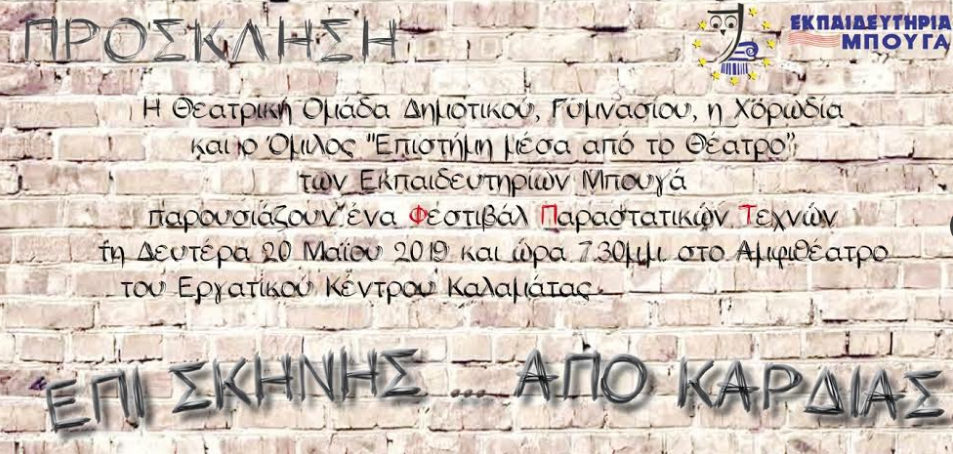 ΠΡΟΣΚΛΗΣΗ
ΕΚΠΑΙΔΕΥΤΗΡΙΑ
ΜΠΟΥΓΑ
Η Θεατρική Ομάδα Δημοτικού, Γυμνασίου, η Χορωδία
και ο Όμιλος "Επιστήμη μέσα από το Θέατρο",
των Εκπαιδευτηρίων Μπουγά
παρουσιάζουν ένα Φεστιβάλ Παραστατικών Τεχνών
τη Δευτέρα 20 Μαΐου 2019 και ώρα 7.30μμ. στο Αμφιθέατρο
του Εργατικού Κέντρου Καλαμάτας.
ΕΠΙ ΣΚΗΝΗΣ ... ΑΠΟ ΚΑΡΔΙΑΣ